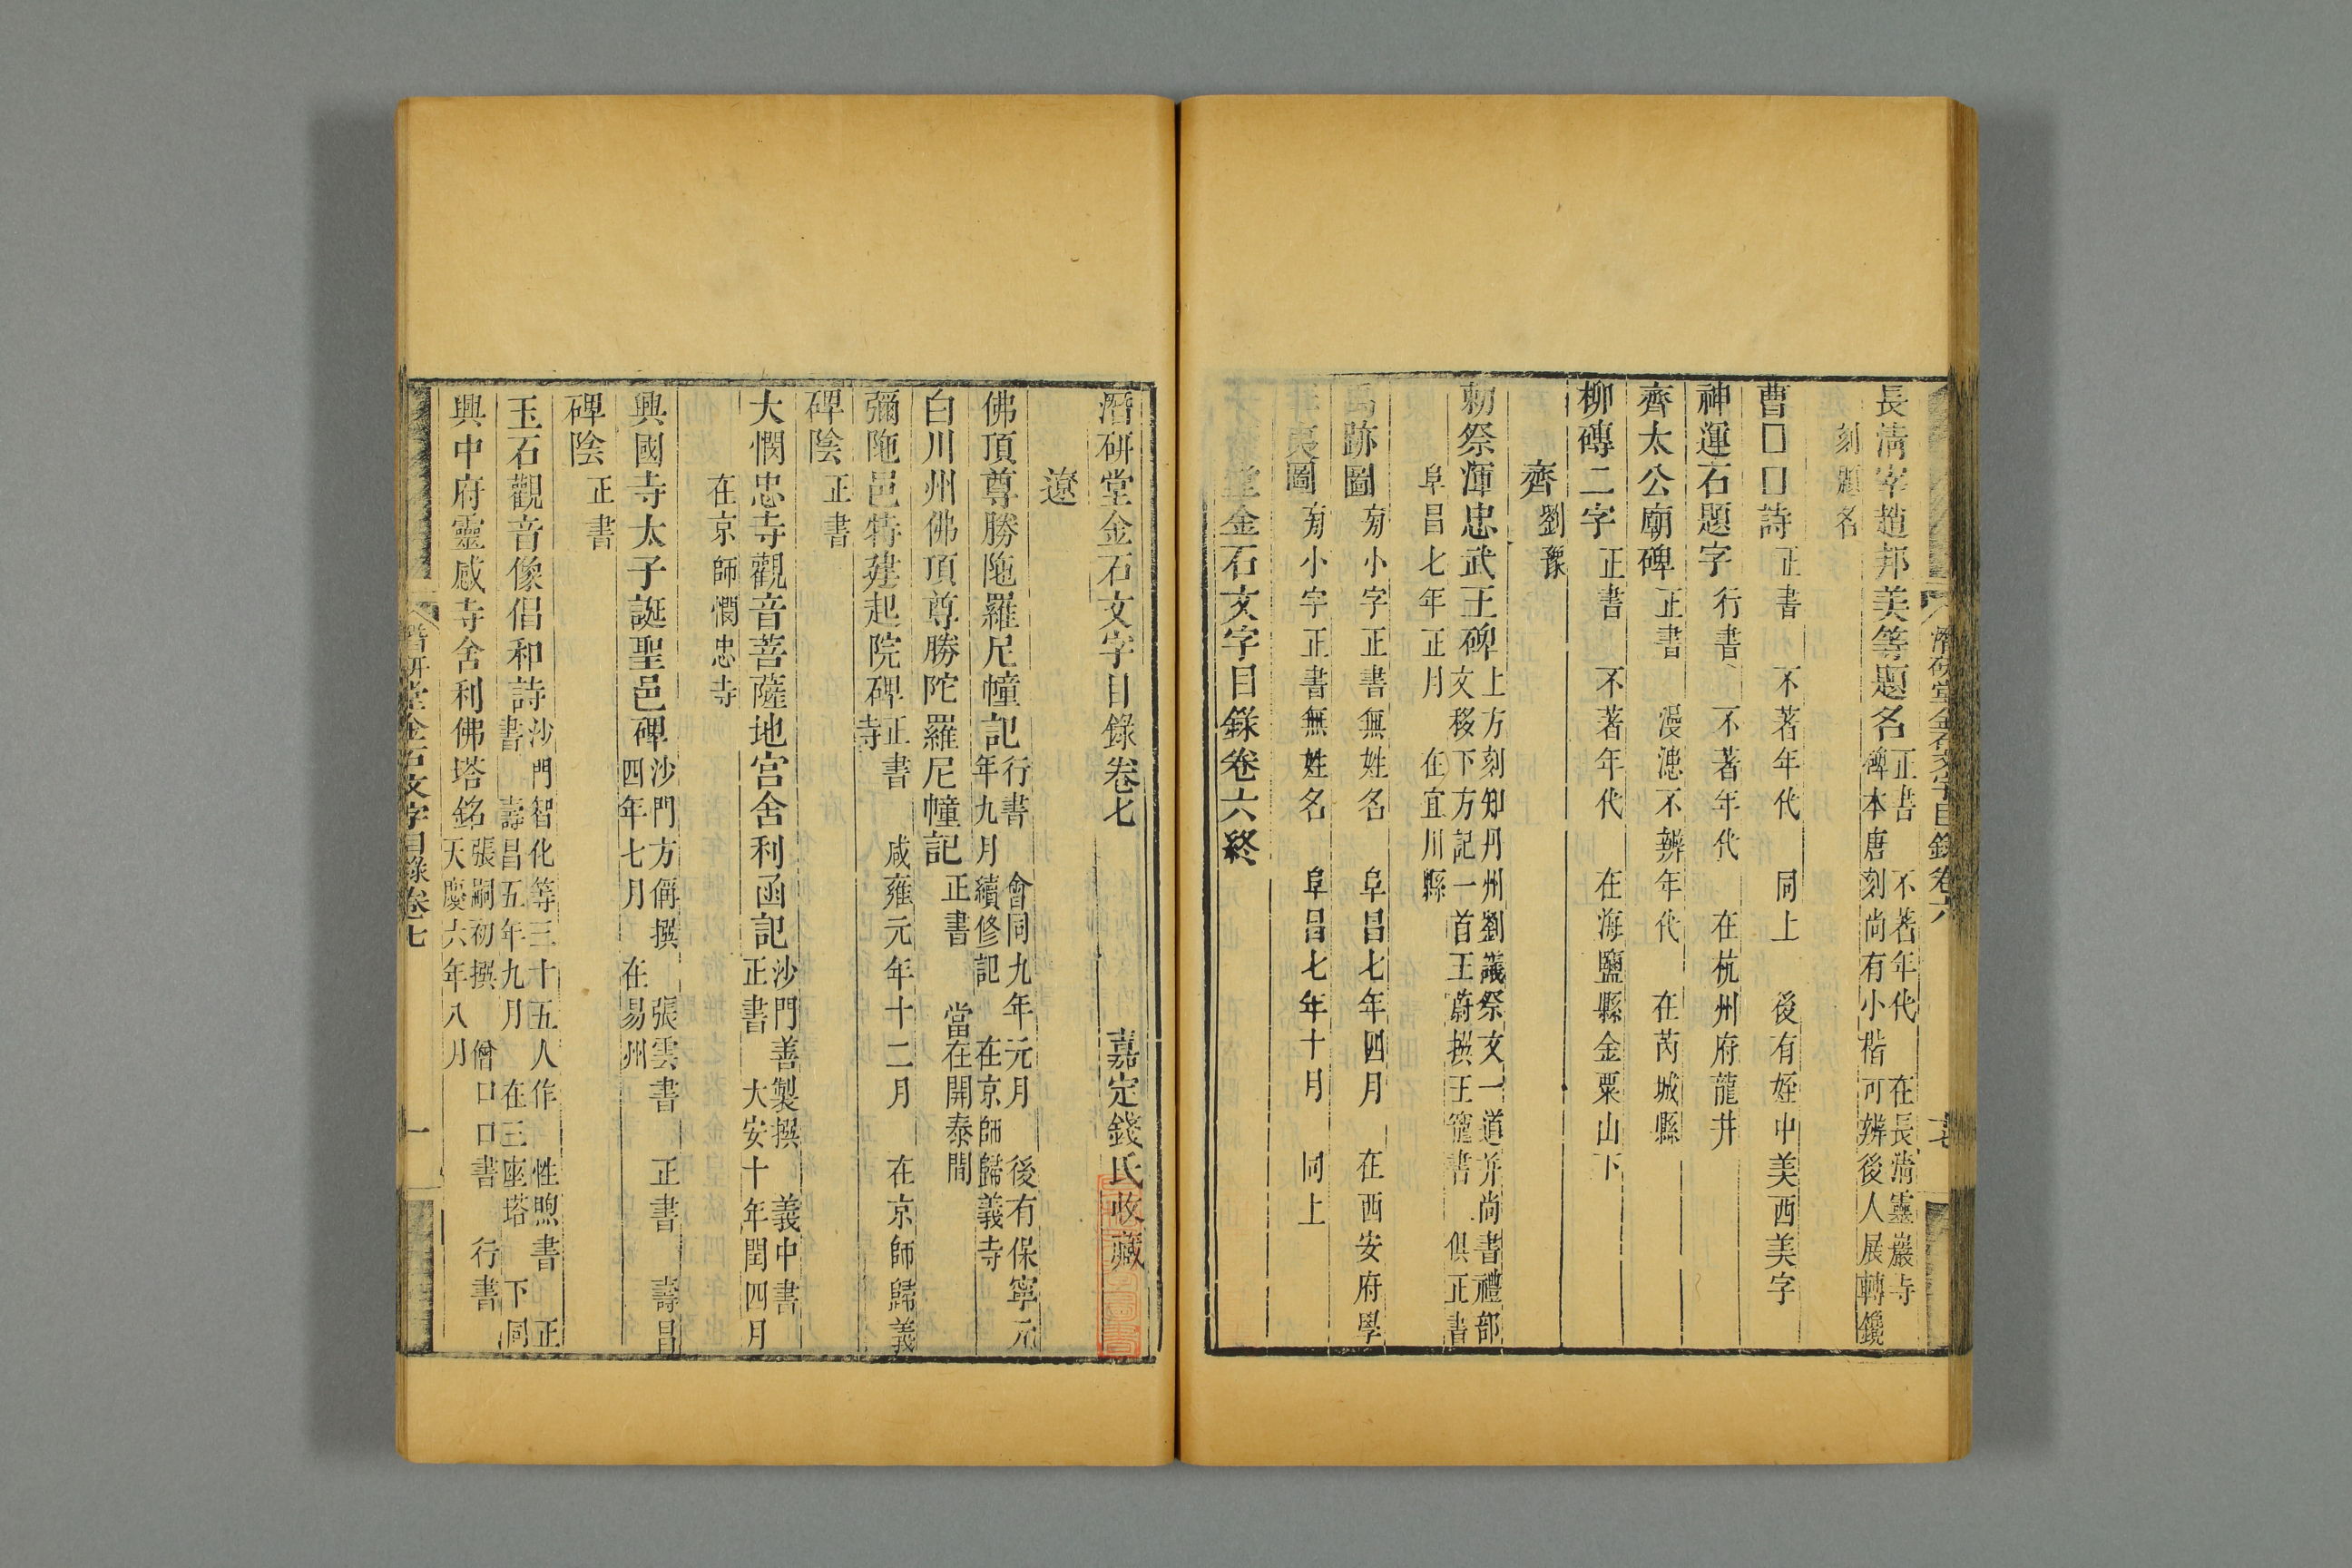 長淸宰趙邦美等題名正書 不著年代 在長淸靈巖寺
碑本唐刻尚有小楷可辨後人展轉鑱
刻題名
曹囗囗詩正書 不著年代 同上 後有姪中美西美字
神運石題字行書 不著年代 在杭州府龍井
齊太公廟碑正書 漫漶不辨年代 在芮城縣
柳磚二字正書 不著年代 在海鹽縣金粟山下
齊劉豫
勑祭渾忠武王碑上方刻知丹州劉議祭文一道并尚書禮部
文移下方記一首王蔚撰王寵書 俱正書
阜昌七年正月 在宜川縣
禹跡圖有小字正書無姓名 阜昌七年四月 在西安府學
夷圖有小字正書無姓名 阜昌七年十月 同上
堂金石文字目錄卷六終
潛硏堂金石文字目錄卷六
潛硏堂金石文字目錄卷七 嘉定錢氏收藏
遼
佛頂尊勝陁羅尼幢記行書 會同九年元月 後有保寧元
年九月續修記 在京師歸義寺
白川州佛頂尊勝陀羅尼幢記正書 當在開泰間
彌陁邑特建起院碑正書 咸雍元年十二月 在京師歸義
寺
碑陰正書
大憫忠寺觀音菩薩地宮舍利函記沙門善製撰 義中書
正書 大安十年閏四月
在京師憫忠寺
興國寺太子誕聖邑碑沙門方偁撰 張雲書 正書 壽昌
四年七月 在易州
碑陰正書
玉石觀音像倡和詩沙門智化等三十五人作 性煦書 正
書 壽昌五年九月 在三座塔 下同
興中府靈感寺舍利佛塔銘張嗣初撰 僧囗囗書 行書
天慶六年八月
潛研堂金石文字目錄卷七
一